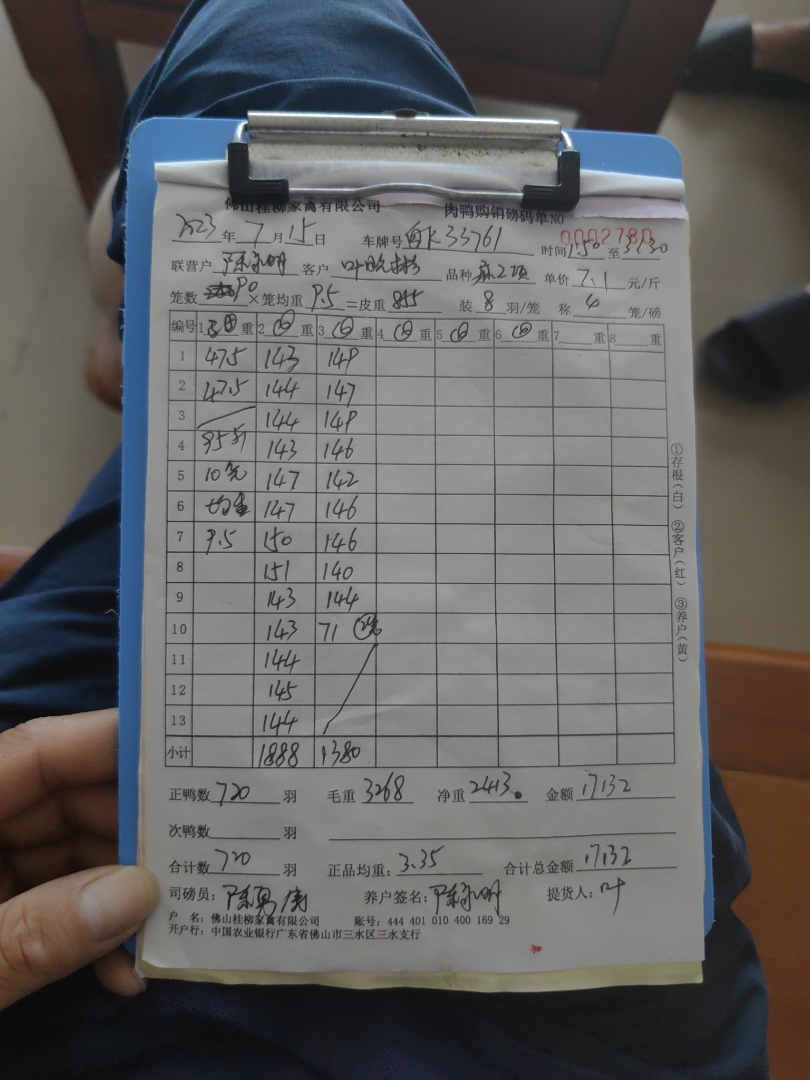 佛山桂柳家禽有限公司 肉鸭购销磅码单NO 0002780
2023年7月15日 车牌号 33761 时间1:50至3:30
联营户 陈永明 客户 叶 品种 单价7.1元/斤
笼数90×笼均重9.5=皮重855 装8羽/笼 称4笼/磅
编号 1 重 2 重 3 重 4 重 5 重 6 重 7 重 8 重
1 47.5 143 149
2 47.5 144 147
3 144 149
4 95斤 143 146
5 10笼 147 142
6 均重 147 146
7 9.5 150 146
8 151 140
9 143 144
10 143 71
11 144
12 145
13 144
小计 1888 1380
正鸭数720羽 毛重3268 净重2413 金额17132
次鸭数 羽
合计数720羽 正品均重:3.35 合计总金额17132
司磅员: 养户签名:陈永明 提货人:叶
户 名:佛山桂柳家禽有限公司 账号:444 401 010 400 169 29
开户行:中国农业银行广东省佛山市三水区三水支行
①存根(白) ②客户(红) ③养户(黄)